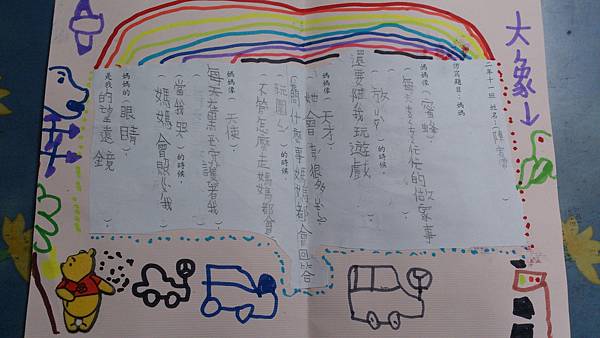 大象↓
二年十一班 姓名:(陳
仿寫題目:媽媽
媽媽像(蜜蜂),
(每天 忙忙的做家事)。
(放 )的時候,
還要陪我玩遊戲
媽媽像(天才),
她會 很多
(問什麼事媽媽都會回答
(玩圍 )的時候,
不管怎麼走媽媽都會
媽媽像(天使),
每天在 守護著我
(當我哭)的時候,
(媽媽會照 我)。
媽媽的(眼睛)
是我(的望遠鏡)。